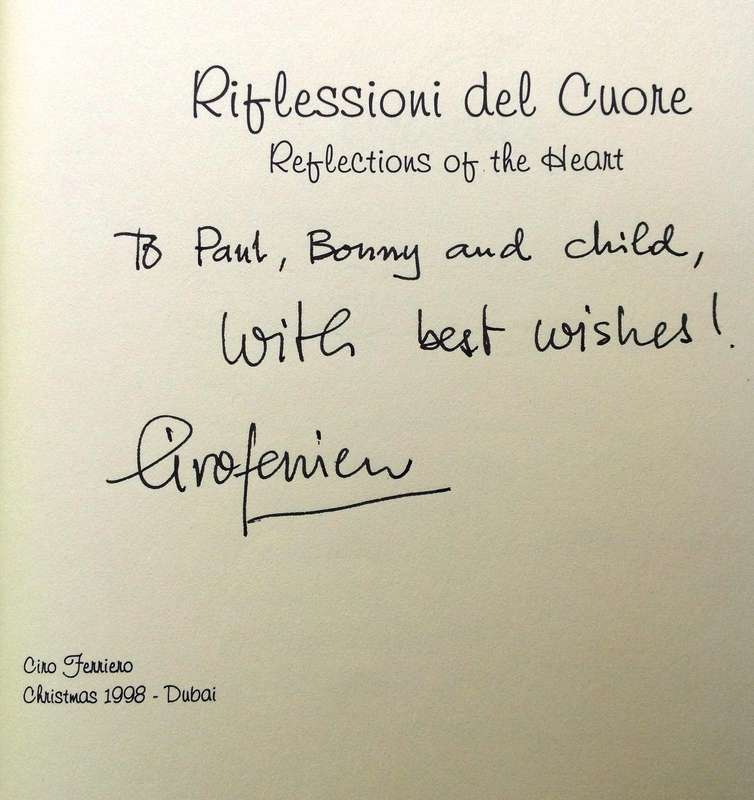 Riflessioni del Cuore
Reflections of the Heart
To Paul, Bonny and child,
with best wishes!
Ciro Ferriero
Ciro Ferriero
Christmas 1998 - Dubai